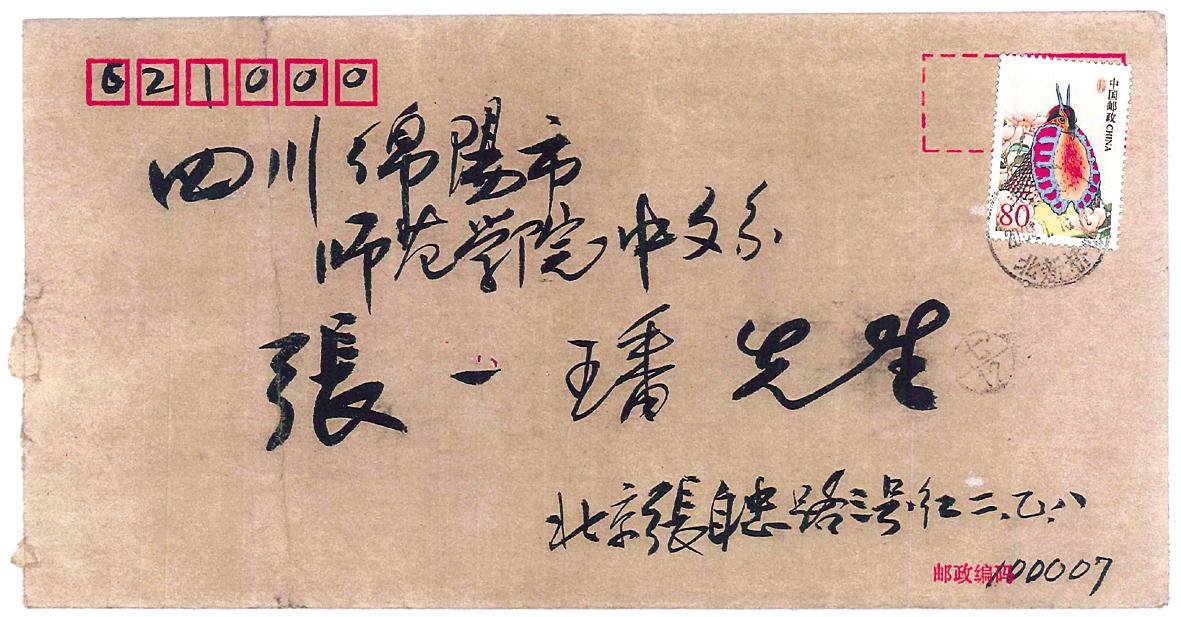 621000
中国邮政 CHINA
80
四川绵陽市
师范学院中文系
張一璠先生
北京張自忠路三号红二、乙、八
邮政编码 100007